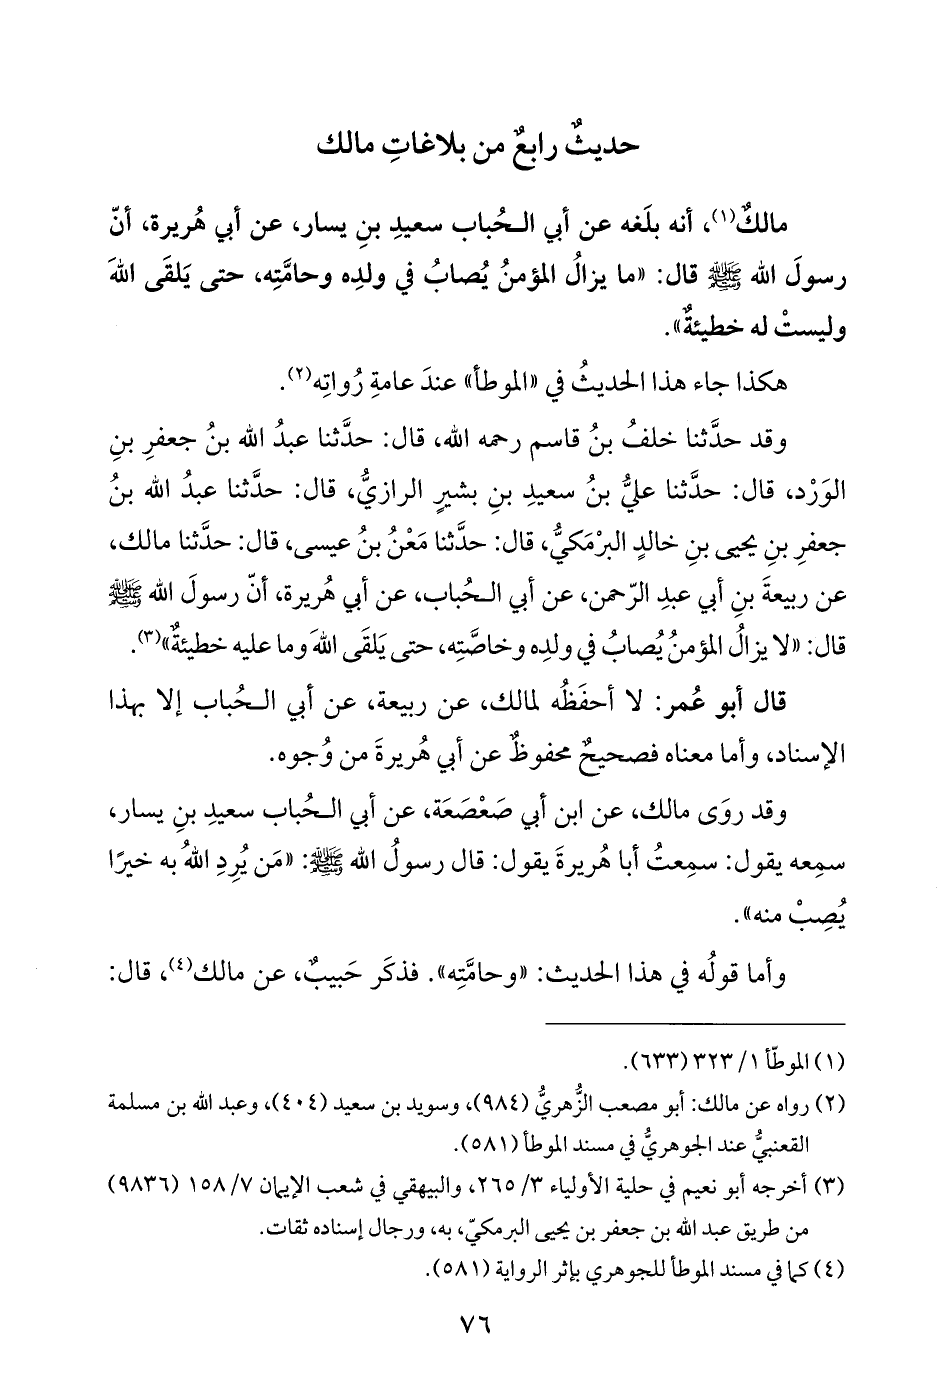 حديثٌ رابعٌ من بلاغاتِ مالك
مالكٌ(١)، أنه بلَغه عن أبي الـحُباب سعيدِ بنِ يسار، عن أبي هُريرة، أنّ
رسولَ الله ﷺ قال: «ما يزالُ المؤمنُ يُصابُ في ولدِه وحامَّتِه، حتى يَلقَى اللهَ
وليستْ له خطيئةٌ».
هكذا جاء هذا الحديثُ في «الموطأ» عندَ عامةِ رُواتِه(٢).
وقد حدَّثنا خلفُ بنُ قاسم رحمه الله، قال: حدَّثنا عبدُ الله بنُ جعفرِ بنِ
الوَرْد، قال: حدَّثنا عليُّ بنُ سعيدِ بنِ بشيرٍ الرازيُّ، قال: حدَّثنا عبدُ الله بنُ
جعفرِ بنِ يحيى بنِ خالدٍ البرْمَكيُّ، قال: حدَّثنا مَعْنُ بنُ عيسى، قال: حدَّثنا مالك،
عن ربيعةَ بنِ أبي عبدِ الرّحمن، عن أبي الـحُباب، عن أبي هُريرة، أنّ رسولَ الله ﷺ
قال: «لا يزالُ المؤمنُ يُصابُ في ولدِه وخاصَّتِه، حتى يَلقَى اللهَ وما عليه خطيئةٌ»(٣).
قال أبو عُمر: لا أحفَظُه لمالك، عن ربيعة، عن أبي الـحُباب إلا بهذا
الإسناد، وأما معناه فصحيحٌ محفوظٌ عن أبي هُريرةَ من وُجوه.
وقد روَى مالك، عن ابن أبي صَعْصَعَة، عن أبي الـحُباب سعيدِ بنِ يسار،
سمِعه يقول: سمِعتُ أبا هُريرةَ يقول: قال رسولُ الله ﷺ: «مَن يُرِدِ اللهُ به خيرًا
يُصِبْ منه».
وأما قولُه في هذا الحديث: «وحامَّتِه». فذكَر حَبيبٌ، عن مالك(٤)، قال:
(١) الموطّأ ١/ ٣٢٣ (٦٣٣).
(٢) رواه عن مالك: أبو مصعب الزُّهريُّ (٩٨٤)، وسويد بن سعيد (٤٠٤)، وعبد الله بن مسلمة
القعنبيُّ عند الجوهريُّ في مسند الموطأ (٥٨١).
(٣) أخرجه أبو نعيم في حلية الأولياء ٣/ ٢٦٥، والبيهقي في شعب الإيمان ٧/ ١٥٨ (٩٨٣٦)
من طريق عبد الله بن جعفر بن يحيى البرمكيّ، به، ورجال إسناده ثقات.
(٤) كما في مسند الموطأ للجوهري بإثر الرواية (٥٨١).
٧٦